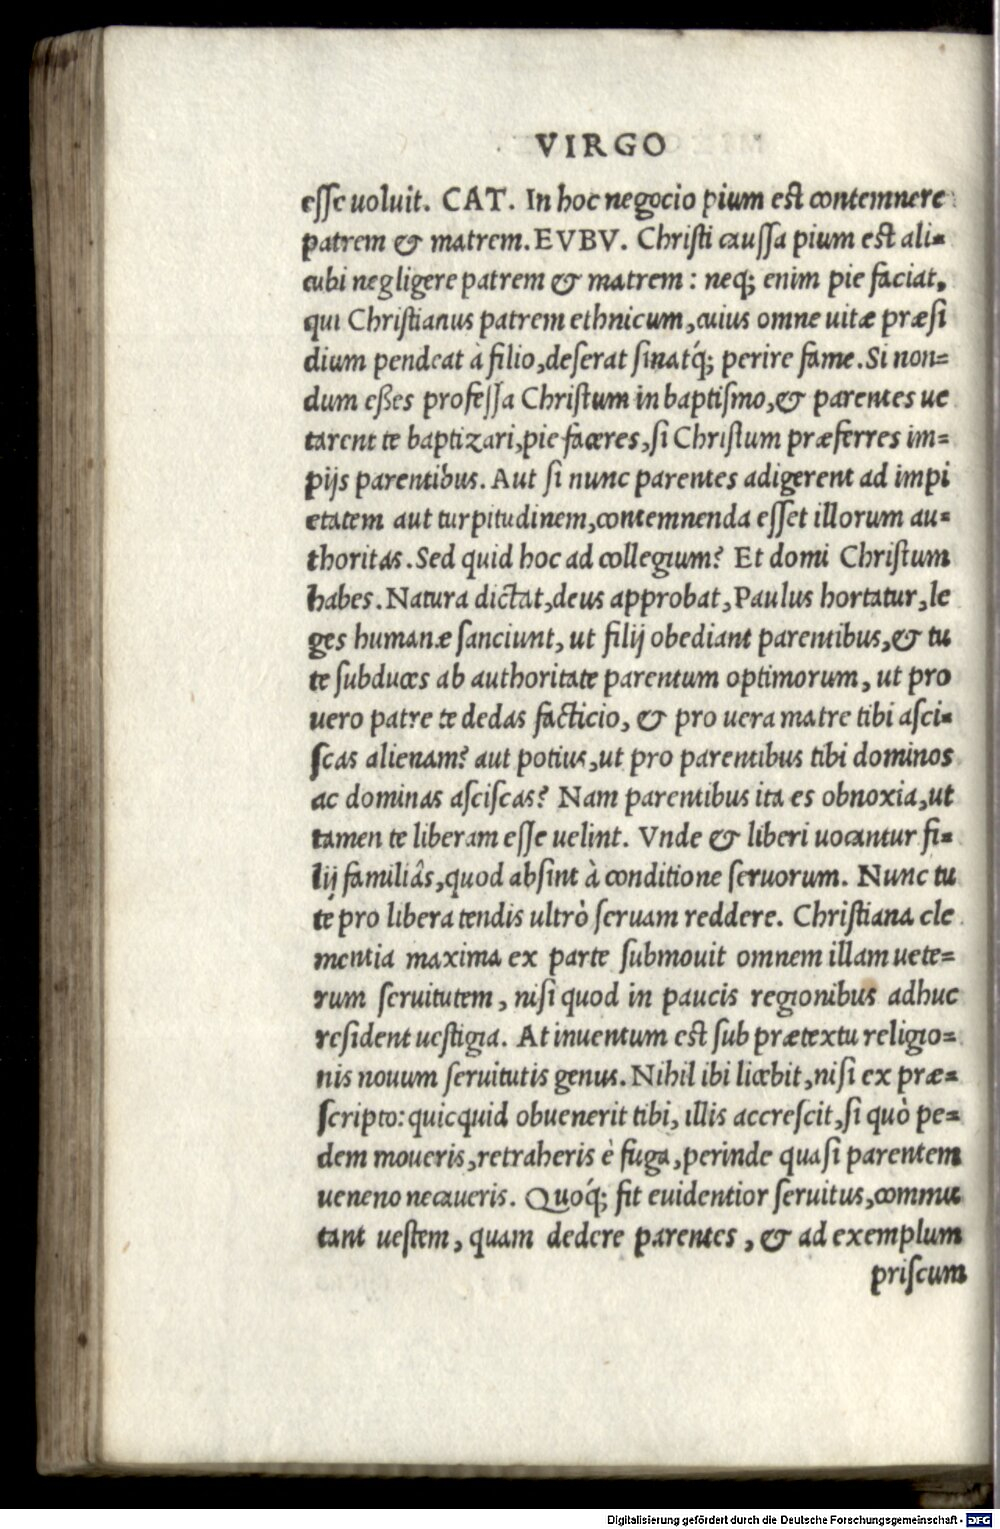 VIRGO
esse uoluit. CAT. In hoc negocio pium est contemnere
patrem & matrem. EVBV. Christi caussa pium est ali=
cubi negligere patrem & matrem: neq; enim pie faciat,
qui Christianus patrem ethnicum, cuius omne uitæ præsi
dium pendeat à filio, deserat sinatq́; perire fame. Si non=
dum eßes professa Christum in baptismo, & parentes ue
tarent te baptizari, pie faceres, si Christum præferres im=
pijs parentibus. Aut si nunc parentes adigerent ad impi
etatem aut turpitudinem, contemnenda esset illorum au=
thoritas. Sed quid hoc ad collegium? Et domi Christum
habes. Natura dictat, deus approbat, Paulus hortatur, le
ges humanæ sanciunt, ut filij obediant parentibus, & tu
te subduces ab authoritate parentum optimorum, ut pro
uero patre te dedas facticio, & pro uera matre tibi asci=
scas alienam? aut potius, ut pro parentibus tibi dominos
ac dominas asciscas? Nam parentibus ita es obnoxia, ut
tamen te liberam esse uelint. Vnde & liberi uocantur fi=
lij familiâs, quod absint à conditione seruorum. Nunc tu
te pro libera tendis ultrò seruam reddere. Christiana cle
mentia maxima ex parte submouit omnem illam uete=
rum seruitutem, nisi quod in paucis regionibus adhuc
resident uestigia. At inuentum est sub prætextu religio=
nis nouum seruitutis genus. Nihil ibi licebit, nisi ex præ=
scripto: quicquid obuenerit tibi, illis accrescit, si quò pe=
dem moueris, retraheris è fuga, perinde quasi parentem
ueneno necaueris. Quoq́; fit euidentior seruitus, commu
tant uestem, quam dedere parentes, & ad exemplum
priscum
Digitalisierung gefördert durch die Deutsche Forschungsgemeinschaft - DFG